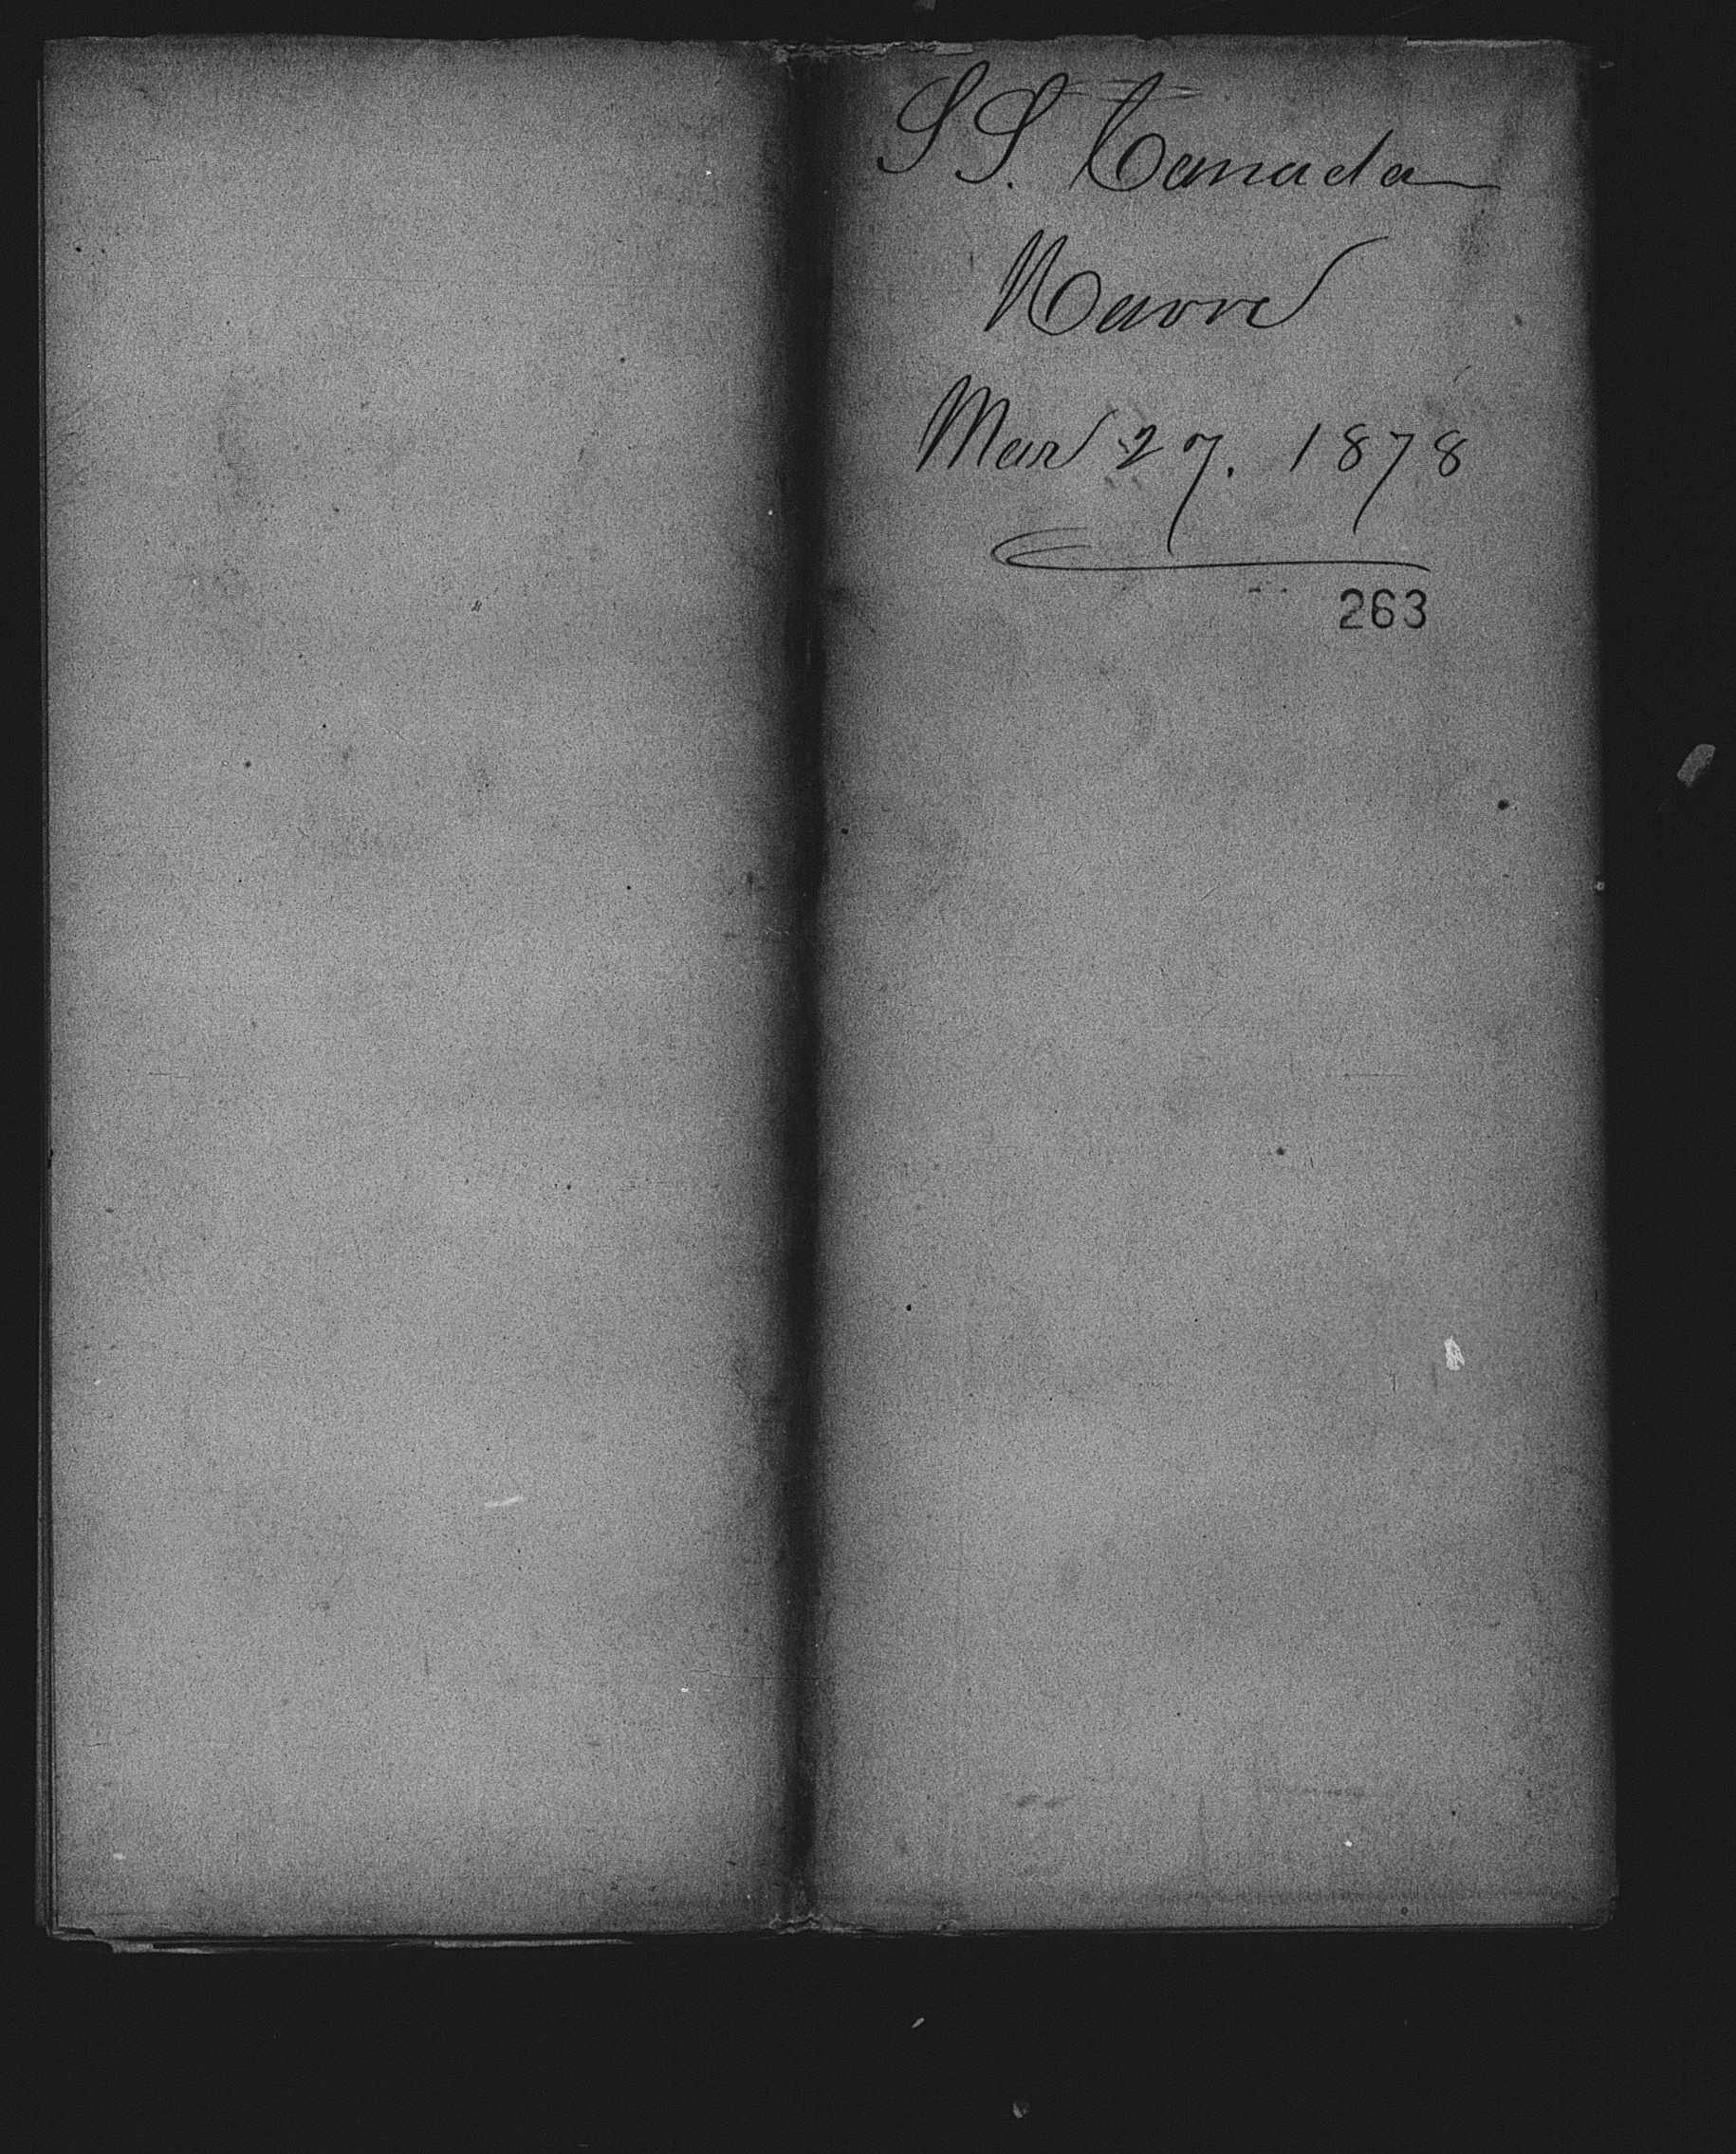 SS. Canada
Havre
Mar 27. 1878
263